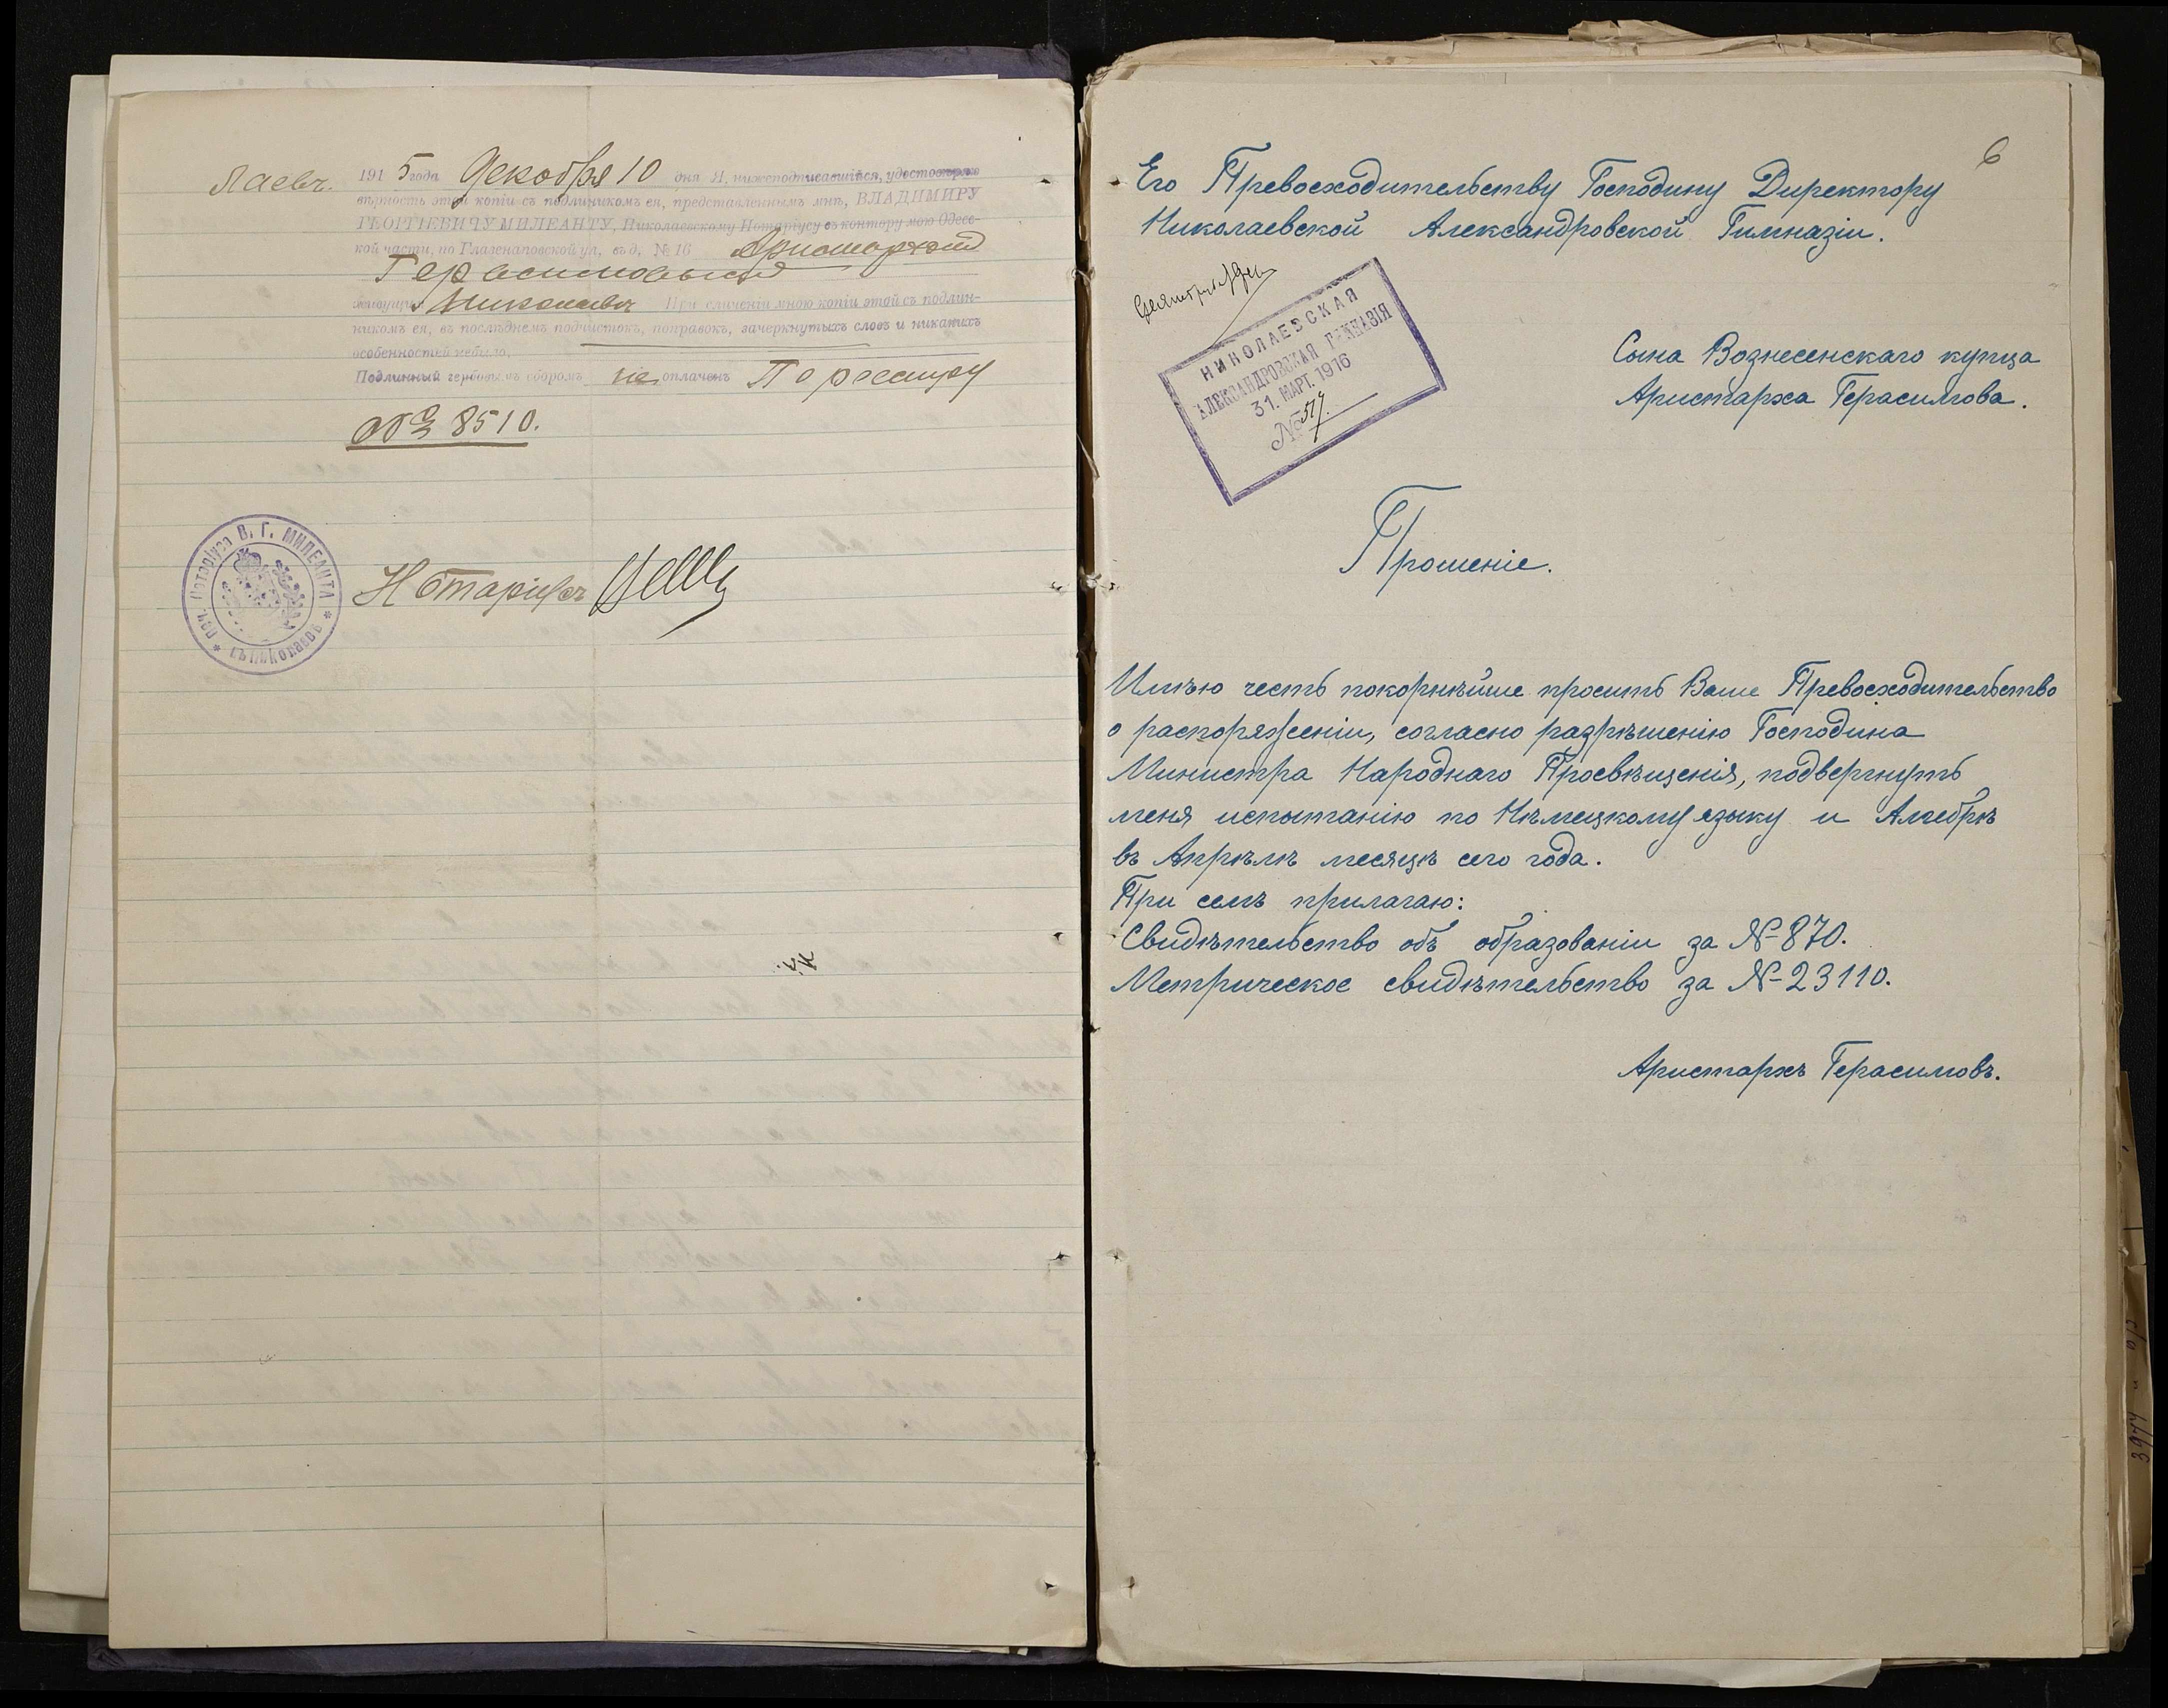 лаевъ. 1915 года Декабря 10 дня Я, нижеподписавшійся, удостовѣряю
вѣрность этой копіи съ подлинникомъ ея, представленнымъ мнѣ, ВЛАДИМИРУ
ГЕОРГІЕВИЧУ МИЛЕАНТУ, Николаевскому Нотаріусу въ контору мою Одесс-
кой части, по Глазенаповской ул, въ д, № 16
Герасимовымъ
живущимъ При сличеніи мною копіи этой съ подлин-
никомъ ея, въ послѣднемъ подчистокъ, поправокъ, зачеркнутыхъ словъ и никакихъ
особенностей небыло,
Подлинный гербовымъ сборомъ не оплаченъ По реестру
№ 8510.
Нотаріусъ
Нотаріуса В. Г. МИЛЕАНТА
6
Его Превосходительству Господину Директору
Николаевской Александровской Гимназіи.
НИКОЛАЕВСКАЯ
АЛЕКСАНДРОВСКАЯ ГИМНАЗІЯ
31. МАРТ. 1916
№ 517.
Сына Вознесенскаго купца
Аристарха Герасимова.
Прошеніе.
Имѣю честь покорнѣйше просить Ваше Превосходительство
о распоряженіи, согласно разрѣшенію Господина
Министра Народнаго Просвѣщенія, подвергнуть
меня испытанію по Нѣмецкому языку и Алгебрѣ
въ Апрѣлѣ месяцѣ сего года.
При семъ прилагаю:
Свидѣтельство объ образованіи за №-870.
Метрическое свидѣтельство за №-23110.
Аристархъ Герасимовъ.